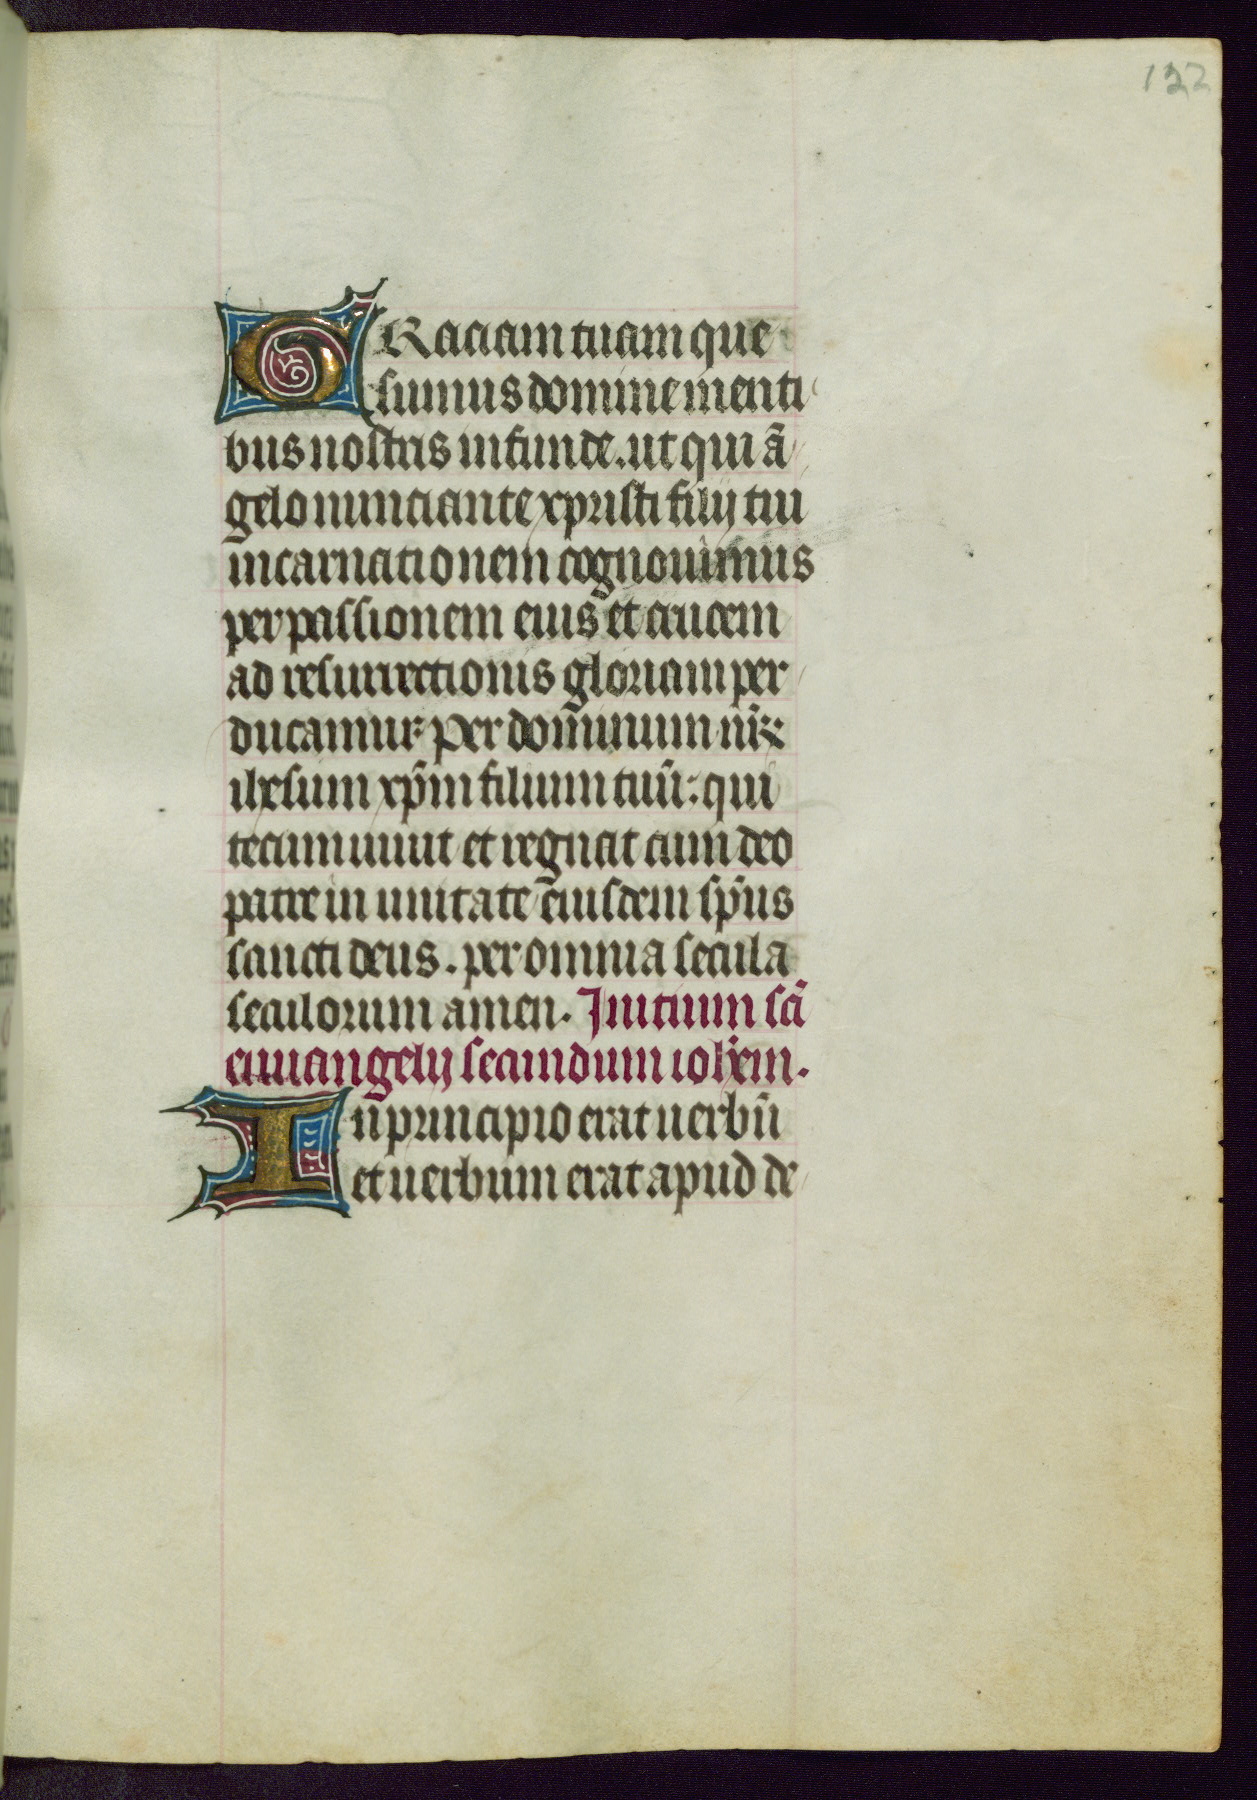 132
GRaciam tuam que
sumus domine menti
bus nostris infunde. ut qui ā
gelo nunciante xpristi filij tui
incarnationem cognouimus
per passionem eius et crucem
ad resurrectionis gloriam per
ducamur Per dom̄inum nr̄̄
ihesum xp̄m filium tuū: qui
tecum uiuit et regnat cum deo
patre in unitate eiusdem sp̄us
sancti deus. per omnia secula
seculorum amen. Initium sc̄i
euuangelij secundum ioh̄em.
In principio erat uerbū
et uerbum erat apud de